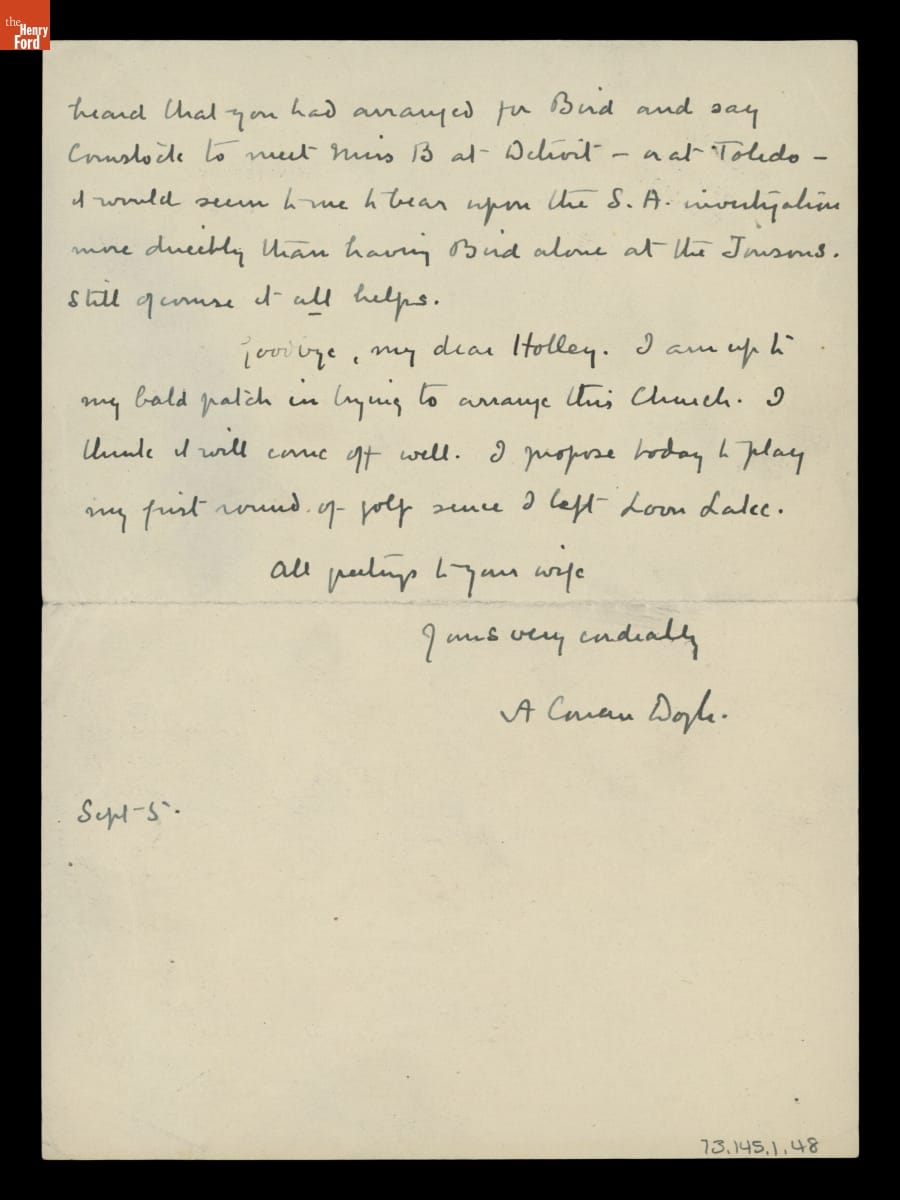 the
Henry
Ford
heard that you had arranged for Bird and say
Comstock to meet Miss B at Detroit – or at Toledo –
it would seem to me to bear upon the S. A. investigation
more directly than having Bird alone at the Jonsons.
Still of course it all helps.
Goodbye, my dear Holley. I am up to
my bald patch in trying to arrange this Church. I
think it will come off well. I propose today to play
my first round of golf since I left Loon Lake.
All greetings to your wife
Yours very cordially
A Conan Doyle.
Sept 5.
73.145.1.48